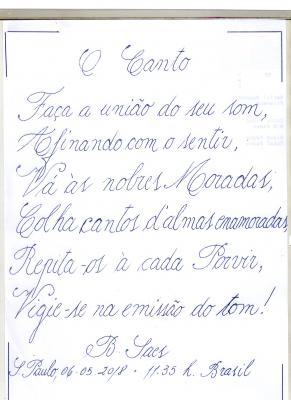 O Canto
Faça a união do seu som,
Afinando com o sentir,
Vá às nobres Moradas;
Colha cantos d'almas enamoradas,
Repita-os à cada Porvir,
Vigie-se na emissão do tom!
B. Saes
S. Paulo, 06-05-2018 - 11:35 h. Brasil